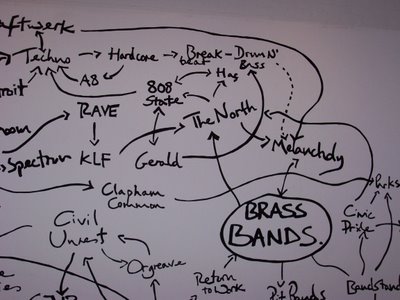 aftwerk
Techno
Hardcore
Break-
beat
Drum N'
Bass
A8
808
State
Hac
troit
RAVE
The North
oom
Spectrum
KLF
Gerald
Melancholy
Clapham
Common
Parks
BRASS
BANDS.
Civic
Pride
Civil
Unrest
Orgreave
Return
to Work
Pit Bands
Bandstand